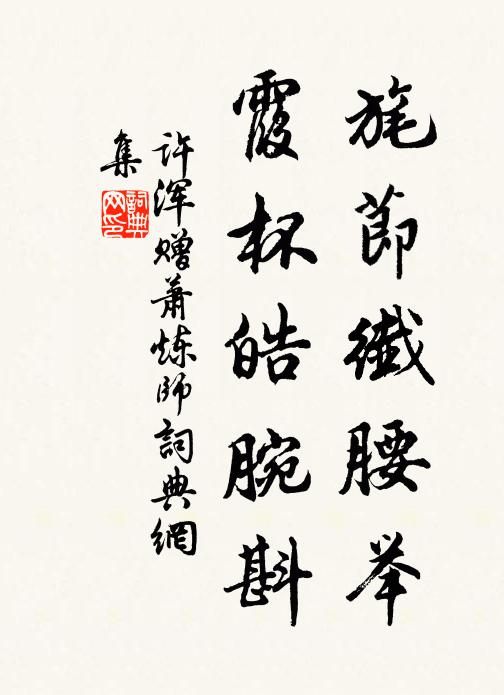 旄節纖腰举
霞杯皓腕斟
许浑赠萧炼师詞典網
集
詞典網印